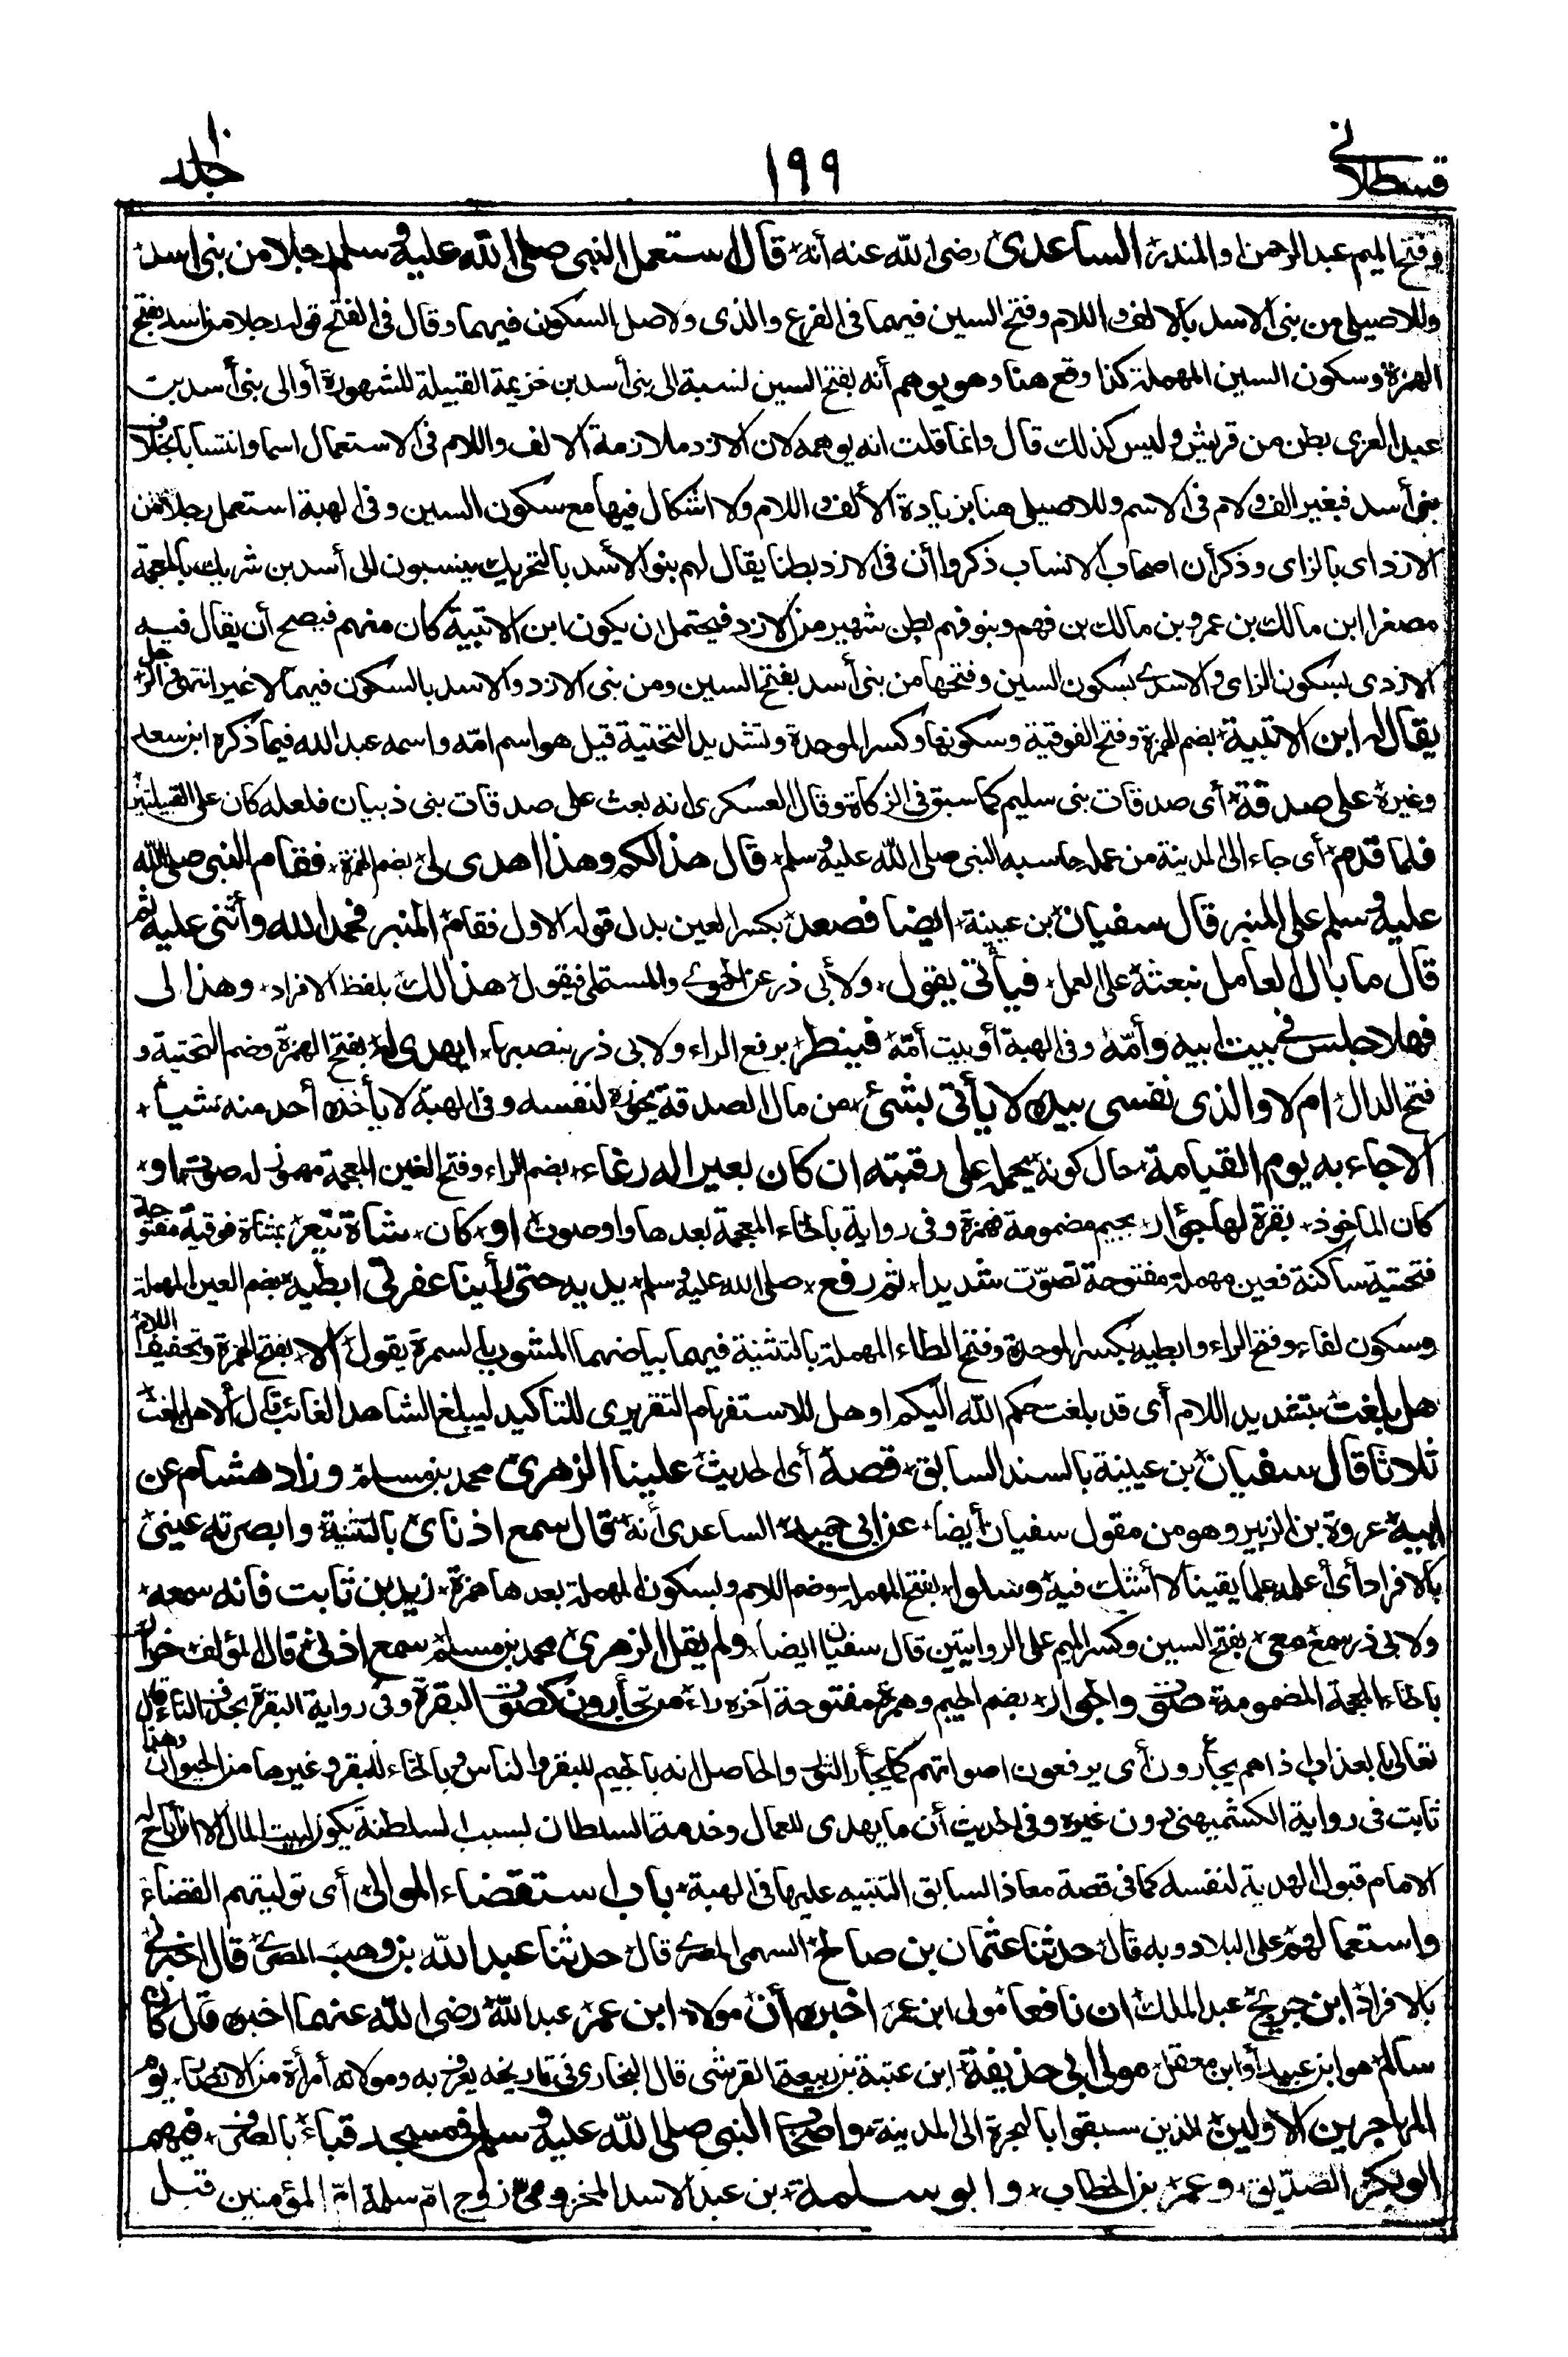 قسطلانى
١٩٩
جلد ١٠
وفتح الميم عبد الرحمن او المنذر الساعدى رضى الله عنه أنه قال استعمل النبى صلى الله عليه وسلم رجلا من بنى اسد
وللاصيلى من بنى الاسد بالالف واللام وفتح السين فيهما فى الفرع والذى ولاصل السكون فيهما وقال فى الفتح قوله رجلا من اسد بفتح
الهمزة وسكون السين المهملة كذا وقع هنا وهو يوهم أنه بفتح السين نسبة الى بنى أسد بن خزيمة القبيلة المشهورة أو الى بنى أسد بت
عبد العزى بطن من قريش وليس كذلك قال وانما قلت انه يوهمه لان الازد ملازمة الالف واللام فى الاستعمال اسما وانتسابا بخلاف
بنى أسد فبغير الف ولام فى الاسم وللاصيلى هنا بزيادة الألف واللام ولا اشكال فيها مع سكون السين وفى الهبة استعمل رجلا من
الازد اى بالزاى وذكر أن اصحاب الانساب ذكروا أن فى الازد بطنا يقال لهم بنو الأسد بالتحريك ينسبون الى أسد بن شريك بالمعجمة
مصغرا ابن مالك بن عمرو بن مالك بن فهم وبنو فهم بطن شهير من الازد فيحتمل ان يكون ابن الاتبية كان منهم فيصح أن يقال فيه
الازدى بسكون الزاى والاسدى بسكون السين وفتحها من بنى أسد بفتح السين ومن بنى الازد والاسد بالسكون فيهما لا غير انتهى الرجل
يقال له ابن الاتبية بضم الهمزة وفتح الفوقية وسكونها وكسر الموحدة وتشديد التحتية قيل هو اسم امّه واسمه عبد الله فيما ذكره ابن سعد
وغيره على صدقة أى صدقات بنى سليم كما سبق فى الزكاة وقال العسكرى انه بعث على صدقات بنى ذبيان فلعله كان على القبيلتين
فلما قدم أى جاء الى المدينة من عمله حاسبه النبى صلى الله عليه وسلم قال هذا لكم وهذا اهدى لى بضم الهمزة فقام النبى صلى الله
عليه وسلم على المنبر قال سفيان بن عيينة ايضا فصعد بكسر العين بدل قوله الاول فقام المنبر فحمد الله وأثنى عليه ثم
قال ما بال العامل نبعثه على العمل فيأتى يقول ولأبى ذر عن الحموى والمستملى فيقول هذا لك بلفظ الافراد وهذا لى
فهلا جلس فى بيت ابيه وأمّه وفى الهبة أو بيت أمّه فينظر برفع الراء ولابى ذر بنصبها ايهدى له بفتح الهمزة وضم التحتية و
فتح الدال ام لا والذى نفسى بيده لا يأتى بشئ من مال الصدقة يحوزه لنفسه وفى الهبة لا يأخذ أحد منه شيأ
الا جاء به يوم القيامة حال كونه يحمله على رقبته ان كان بعيرا له رغاء بضم الراء وفتح الغين المعجمة مهموز له صوت او
كان المأخوذ بقرة لها جؤار بجيم مضمومة فهمزة وفى رواية بالخاء المعجمة بعدها واو صوت او كان شاة تيعر بمثناة فوقية مفتوحة
فتحتية ساكنة فعين مهملة مفتوحة تصوّت شديدا ثم رفع صلى الله عليه وسلم يديه حتى رأينا عفرتى ابطيه بضم العين المهملة
وسكون الفاء وفتح الراء وابطيه بكسر الموحدة وفتح الطاء المهملة بالتثنية فيهما بياضهما المشوب بالسمرة يقول ألا بفتح الهمزة وتخفيف اللام
هل بلغت بتشديد اللام أى قد بلغت حكم الله اليكم او هل للاستفهام التقريرى للتاكيد ليبلغ الشاهد الغائب قال ألا هل بلغت
ثلاثا قال سفيان بن عيينة بالسند السابق قصه أى الحديث علينا الزهرى محمد بن مسلم وزاد هشام عن
ابيه عروة بن الزبير وهو من مقول سفيان أيضا عن ابى حميد الساعدى أنه قال سمع اذناى بالتثنية وابصرته عينى
بالافراد أى أعلمه علما يقينا لا أشك فيه وسلوا بفتح المهملة وضم اللام وبسكون المهملة بعدها همزة زيد بن ثابت فانه سمعه
ولابى ذر سمع معى بفتح السين وكسر الميم على الروايتين قال سفيان ايضا ولم يقل الزهرى محمد بن مسلم سمع اذنى قال المؤلف خوار
بالخاء المعجمة المضمومة صوت والجؤار بضم الجيم وهمزة مفتوحة آخره راء من تجأرون كصوت البقرة وفى رواية البقر بحذف التاء قال
تعالى بالعذاب اذا هم يجأرون أى يرفعون اصواتهم كما يجأر الثور والحاصل انه بالجيم للبقر والناس وبالخاء للبقر وغيرها من الحيوان وهذا
ثابت فى رواية الكشميهنى دون غيره وفى الحديث أن ما يهدى للعمال وخدمة السلطان بسبب السلطنة يكون لبيت المال الا ان أباح له
الامام قبول الهدية لنفسه كما فى قصة معاذ السابق التنبيه عليها فى الهبة باب استقضاء الموالى أى توليتهم القضاء
واستعمالهم على البلاد وبه قال حدثنا عثمان بن صالح السهمى المصرى قال حدثنا عبد الله بن وهب المصرى قال اخبرنى
بالافراد ابن جريج عبد الملك ان نافعا مولى ابن عمر اخبره أن مولاه ابن عمر عبد الله رضى الله عنهما اخبره قال كان
سالم هو ابن عبيد أو ابن معقل مولى ابى حذيفة ابن عتبة بن ربيعة القرشى قال البخارى فى تاريخه يعرف به ومولاته أمرأة من الانصار يؤم
المهاجرين الاولين الذين سبقوا بالهجرة الى المدينة واصحاب النبى صلى الله عليه وسلم فى مسجد قباء بالصرف فيهم
ابو بكر الصدّيق وعمر بن الخطاب وابو سلمة بن عبد الاسد المخزومى زوج امّ سلمة امّ المؤمنين قبل